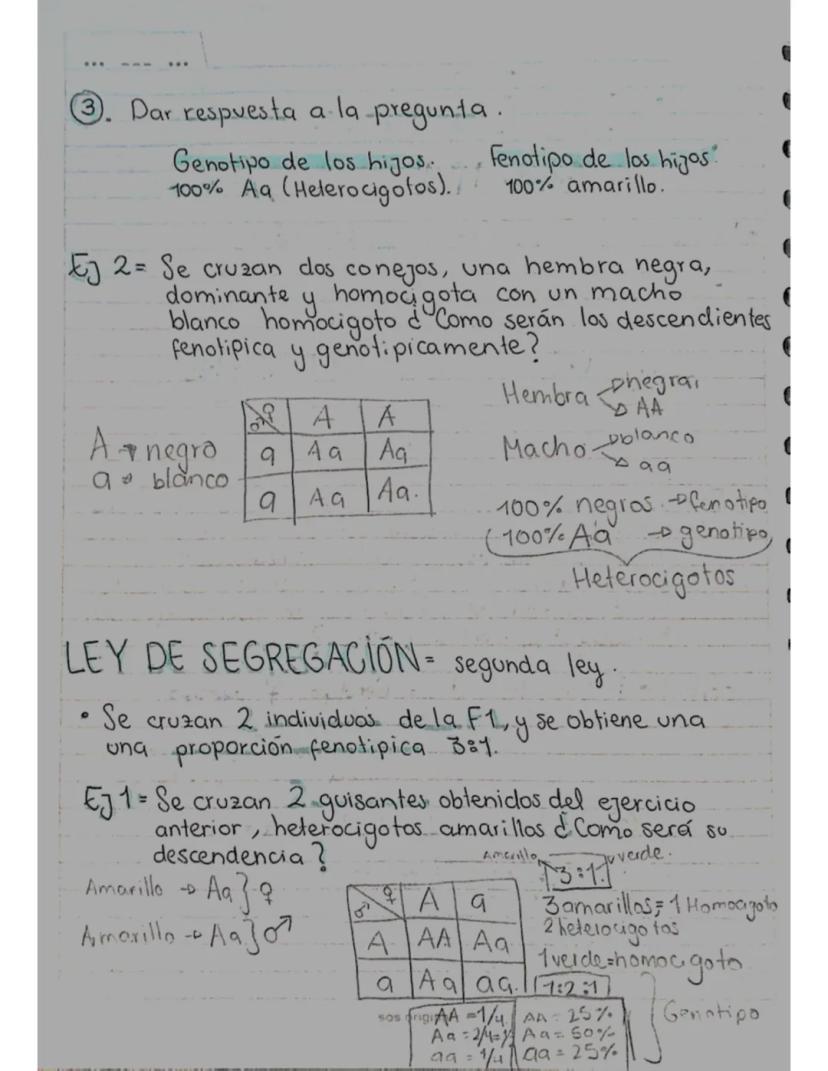 ③. Dar respuesta a la pregunta.
Genotipo de los hijos. Fenotipo de los hijos
100% Aa (Heterocigotos). 100% amarillo.
Ej 2= Se cruzan dos conejos, una hembra negra,
dominante y homocigota con un macho
blanco homocigoto ¿Como serán los descendientes
fenotipica y genotipicamente?
Hembra → negra,
→ AA
A → negro
a → blanco
♂ ♀ A A
a Aa Aa
a Aa Aa.
Macho → blanco
→ aa
100% negros → fenotipo
100% Aa → genotipo
Heterocigotos
LEY DE SEGREGACIÓN= segunda ley.
• Se cruzan 2 individuos de la F1, y se obtiene una
una proporción fenotipica 3:1.
Ej 1= Se cruzan 2 guisantes obtenidos del ejercicio
anterior, heterocigotos amarillos ¿Como será su
descendencia?
Amarillo verde.
3:1
Amarillo → Aa } ♀
Amarillo → Aa } ♂
♂ ♀ A a
A AA Aa
a Aa aa.
3 amarillos= 1 Homocigoto
2 heterocigotos
1 verde=homocigoto
1:2:1
Genotipo
AA =1/4 AA = 25%
Aa =2/4= Aa = 50%
aa = 1/4 aa = 25%